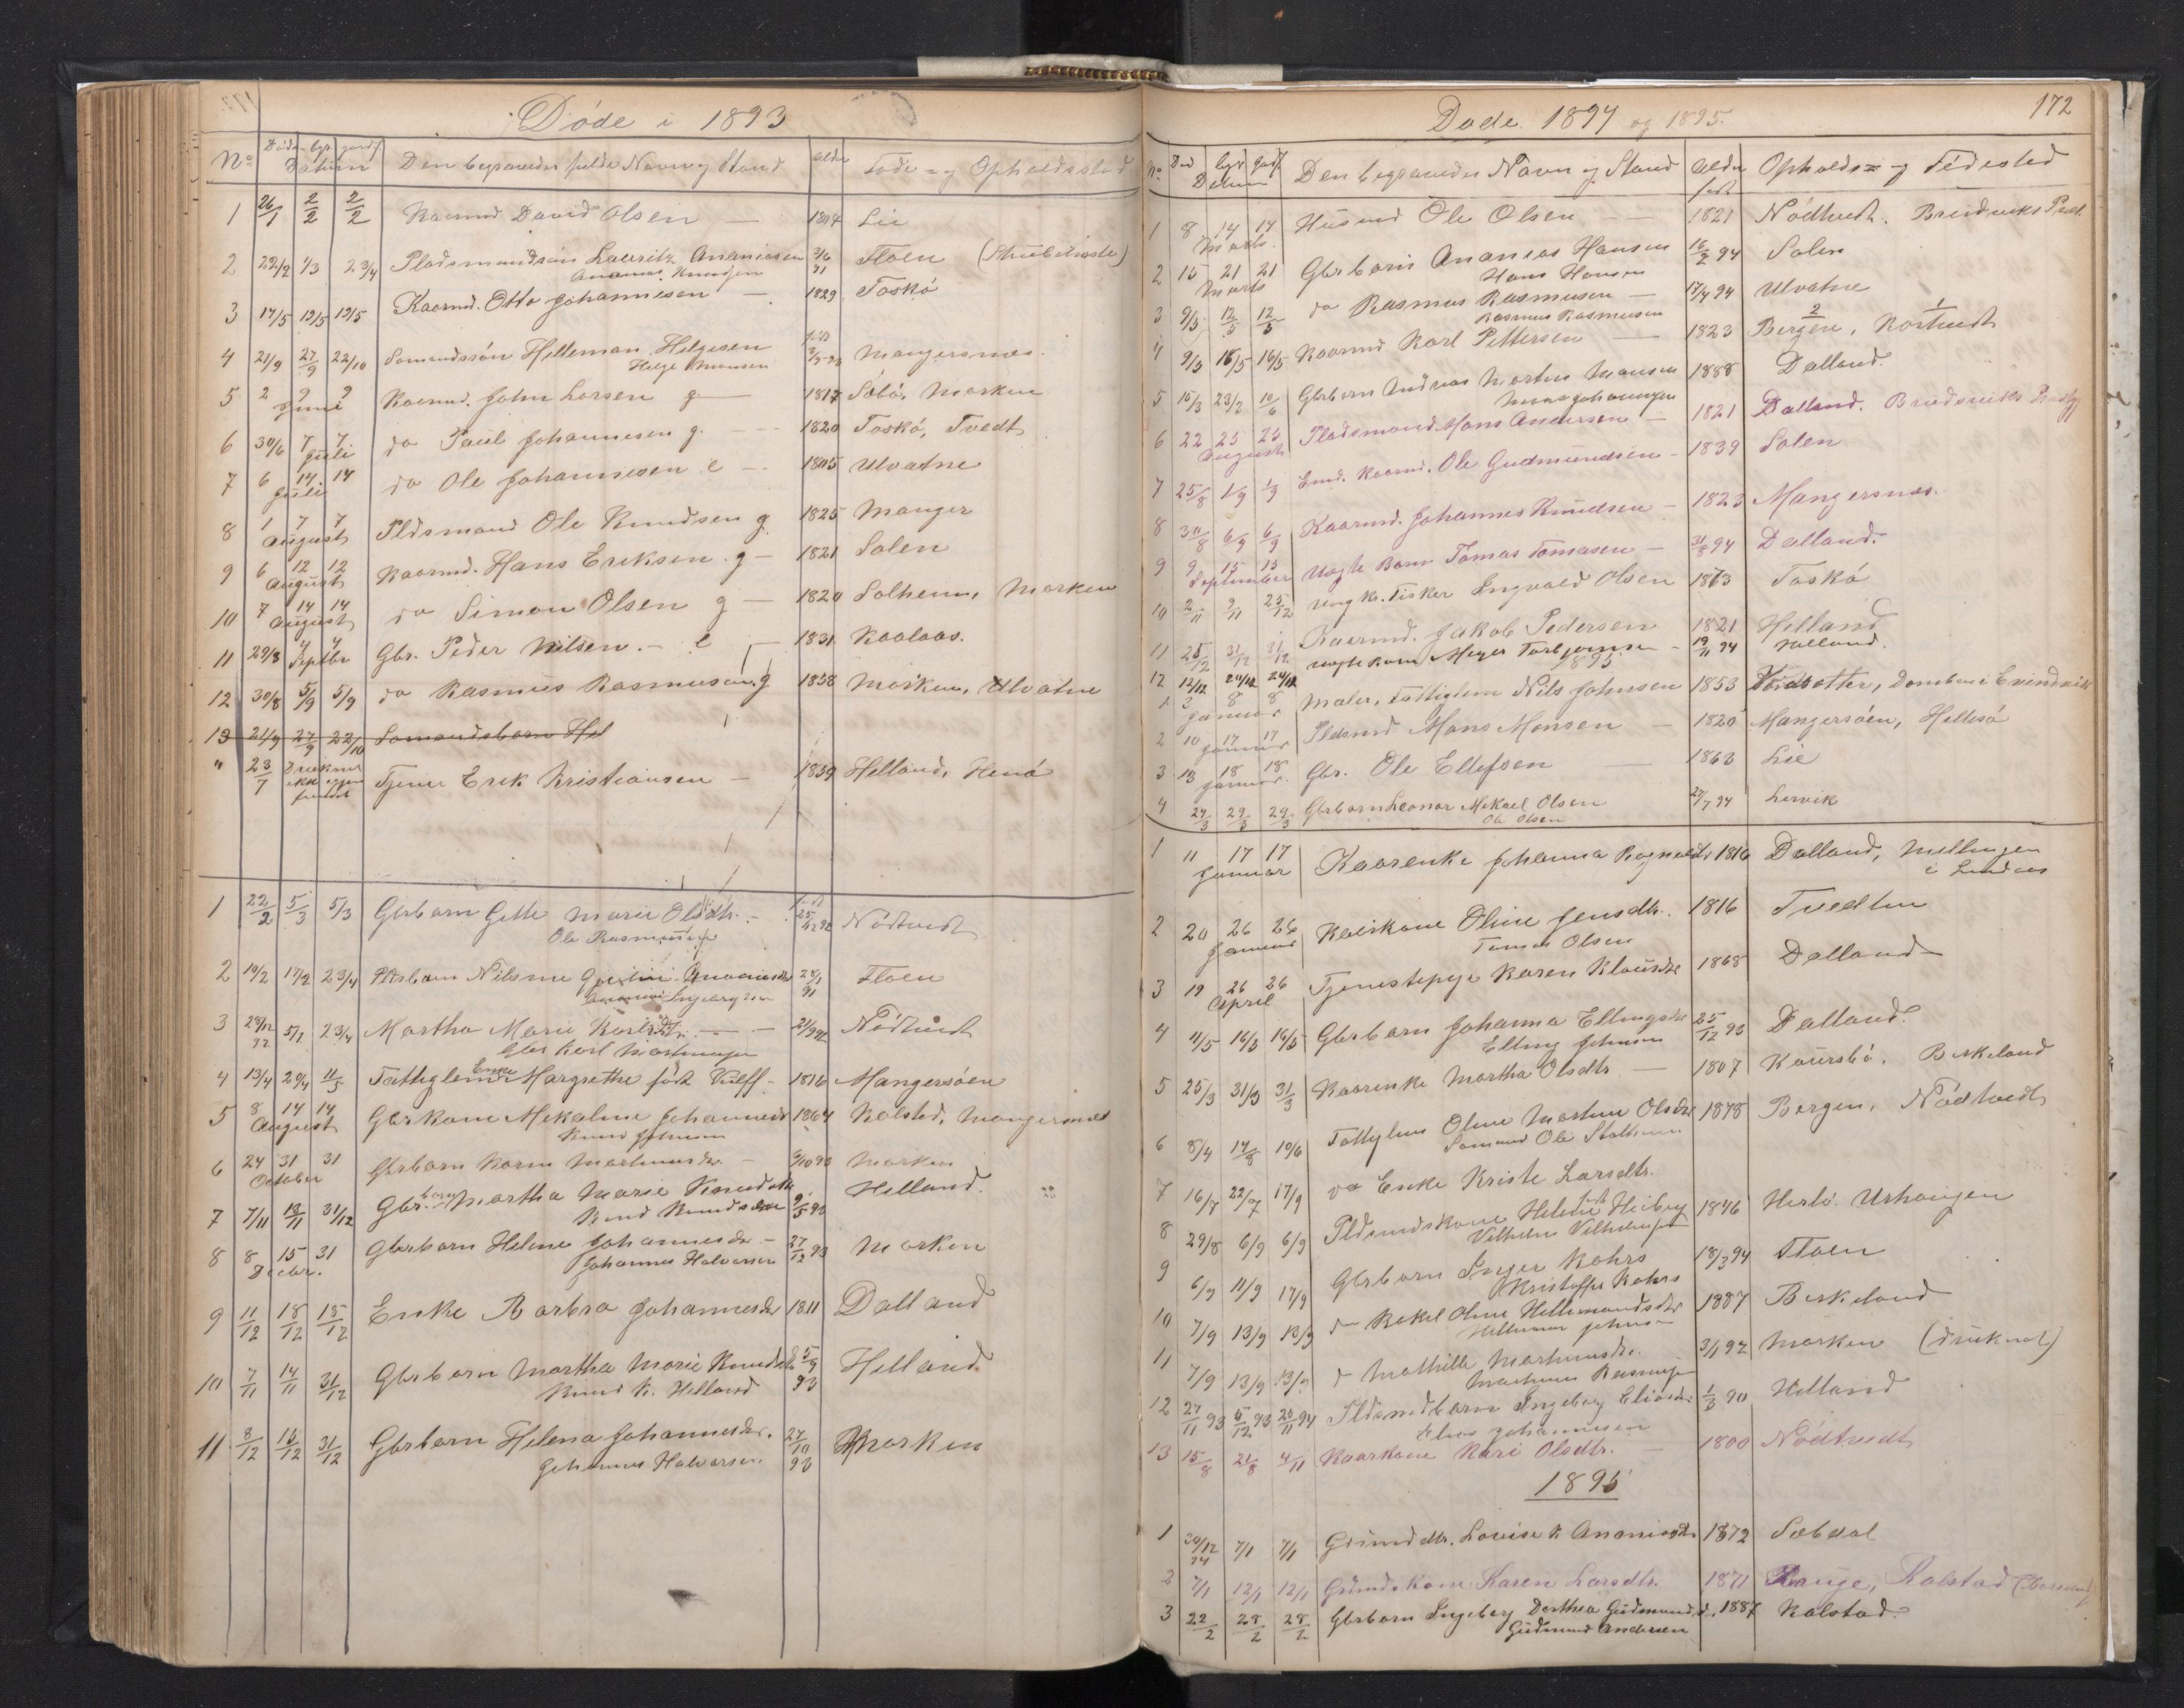 Døde i 1893
No Døds- bgr. jordf. Datum Den begravedes fulde Navn og Stand Alder Føde- og Opholdssted
1 26/1 2/2 2/2 Kaarmd David Olsen — 1804 Lie
2 22/2 1/3 23/4 Pladsmandssön Lauritz Ananiassen 91 Floen
Ananias Knudsen
3 14/5 19/5 19/5 Kaarmd. Otto Johannesen — 1829 Toskö
4 21/9 27/9 22/10 Sömandssön Helleman Helgesen født Mangersnes.
Helge Monsen
5 2 9 9 Juni Kaarmd. John Larsen g. — 1817 Söbö, Morken
6 30/6 7 7 Juli do Paul Johannesen g. 1820 Toskö, Tvedt
7 6 14 14 Juli do Ole Johannesen e 1805 Ulvatne
8 1 7 7 August Pldsmand Ole Knudsen g. 1825 Manger
9 6 12 12 August Kaarmd. Hans Eriksen. g — 1821 Solen
10 7 14 14 August do Simon Olsen g — 1820 Solheim, Morken
11 29/8 4 4 Septbr Gbr. Peder Nilsen. — e — 1831 Kaalaas.
12 30/8 5/9 5/9 do Rasmus Rasmussen. g 1838 Morken, Ulvatne
13 21/9 27/9 22/10 Sömandsbarn Hel
" 23/7 Druknet ikke igjen fundet Tjener Erik Kristiansen — 1839 Helland, Henö
1 22/2 5/3 5/3 Gbrbarn Gitte Marie Olsdtr. — født 25/12 92 Nödtvedt
Ole Rasmussen
2 10/2 17/2 23/4 Pldsbarn Nilsine 91 Floen
3 28/12 92 5/1 23/4 Martha Marie Karlsdtr. — 92 Nödtvedt
Gbr Karl Martinusen
4 13/4 20/4 11/5 Fattiglem Enke Margrethe født Wulff — 1816 Mangersöen
5 8 14 14 August Gbrkone Mekaline Johannesdr 1864 Kolstad, Mangersnes
Knud Johnsen
6 24 31 31 October Gbrbarn Karen Martinusdr. — 93 Morken
7 7/11 13/11 31/12 Gbr.barn Martha Marie Knudsdtr 5 93 Helland.
Knud Knudsen
8 8 15 31 Decbr. Gbrbarn Helene Johannesdr — 27/12 93 Morken
Johannes Halvorsen
9 11/12 18/12 18/12 Enke Barbra Johannesdr 1811 Dalland
10 7/11 14/11 31/12 Gbrbarn Martha Marie Knudsdtr 5/9 93 Helland
Knud K. Helland
11 8/12 16/12 31/12 Gbrbarn Helena Johannesdr. 27/10 93 Morken
Johannes Halvorsen.
172
Døde 1894 og 1895.
No. Død bgr jordf Datum Den begravedes Navn og Stand Alder født Opholds= og Fødested
1 8 14 14 Marts. Husmd Ole Olsen — 1821 Nödtvedt. Bruviks Præst.
2 15 21 21 Marts Gbrbarn Ananias Hansen 16/2 94 Solen
Hans Hansen
3 9/5 12/5 12/5 do Rasmus Rasmussen — 17/4 94 Ulvatne
Rasmus Rasmussen
4 9/5 16/5 16/5 Kaarmd Karl Pettersen — 1823 Bergen, Kostvedt
5 15/3 23/3 10/6 Gbrbarn Andreas Martin Monsen 1888 Dalland.
Mons Johannesen
6 22 25 25 August Pladsmand Mons Andersen — 1821 Dalland. Bruviks Præstgj
7 25/8 1/9 1/9 Emd. Kaarmd. Ole Gudmundsen — 1839 Solen
8 30/8 6/9 6/9 Kaarmd. Johannes Knudsen — 1823 Mangersnes.
9 9 15 15 September Uægte Barn Tomas Tomasen — 31/8 94 Dalland.
10 2/11 9/11 25/12 Ung k. Fisker Ingvald Olsen 1873 Toskö
11 25/12 31/12 31/12 Kaarmd. Jakob Pedersen 1821 Helland
12 12/12 24/12 24/12 Uægte Barn Meyer Torbjørnsen — 19/11 94 Helland.
1895.
1 2 8 8 Januar Maler, Fattiglem Nils Johnsen 1853 Evindvik
2 10 17 17 Januar Pldsmd Mons Monsen — 1820 Mangersöen, Hellesö
3 13 18 18 Januar. Gbr. Ole Ellefsen — 1863 Lie
4 24/3 29/3 29/3 Gbrbarn Leonar Mekael Olsen 94 Lervik
Ole Olsen
1 11 17 17 Januar Kaarenke Johanna Rognaldsdr 1816 Dalland, Mellingen
i Lindaas
2 20 26 26 Januar Kaarkone Oline Jensdtr. 1816 Tvedten
Tomas Olsen
3 19 26 26 April Tjenestepige Karen Klausdtr 1868 Dalland
4 11/5 16/5 16/5 Gbrbarn Johanna Ellingsdtr 25/12 93 Dalland.
Elling Johnsen
5 25/3 31/3 31/3 Kaarenke Martha Olsdtr. — 1807 Birkeland
6 8/4 14/8 10/6 Fattiglem Oline Martine Olsdtr 1878 Bergen, Nödtvedt
Sömand Ole
7 16/7 22/7 17/9 do Enke Kriste Larsdtr.
8 29/8 6/9 6/9 Pldsmdskone Helene født Heiberg 1846 Herlö. Urhaugen
Vilhelm Vilhelmsen
9 6/9 11/9 17/9 Gbrbarn Inger Rohrs 18/3 94 Floen
Kristoffer Rohrs
10 7/9 13/9 13/9 do Rakel Oline Hellemandsdtr 1887 Birkeland
Helleman Johnsen
11 7/9 13/9 13/9 d Mathilde Martinusdtr. 3/1 92 Morken (druknet)
Martinus Rasmussen
12 27/11 93 5/12 93 25/11 94 Pldsmdbarn Ingeborg Eliasdr. 1/3 90 Helland
Elias Johannesen
13 15/8 21/8 4/11 Kaarkone Kari Olsdtr. — 1800 Nödtvedt
1895
1 30/12 94 7/1 7/1 Grumddtr. Lovise K Ananiasdr 1872 Sæbdal
2 7/1 12/1 12/1 Grmdskone Karen Larsdtr. 1871 Kolstad
3 22/2 28/2 28/2 Gbrbarn Ingeborg Dorthea Gudmundsd. 1887 Kolstad.
Gudmund Andersen